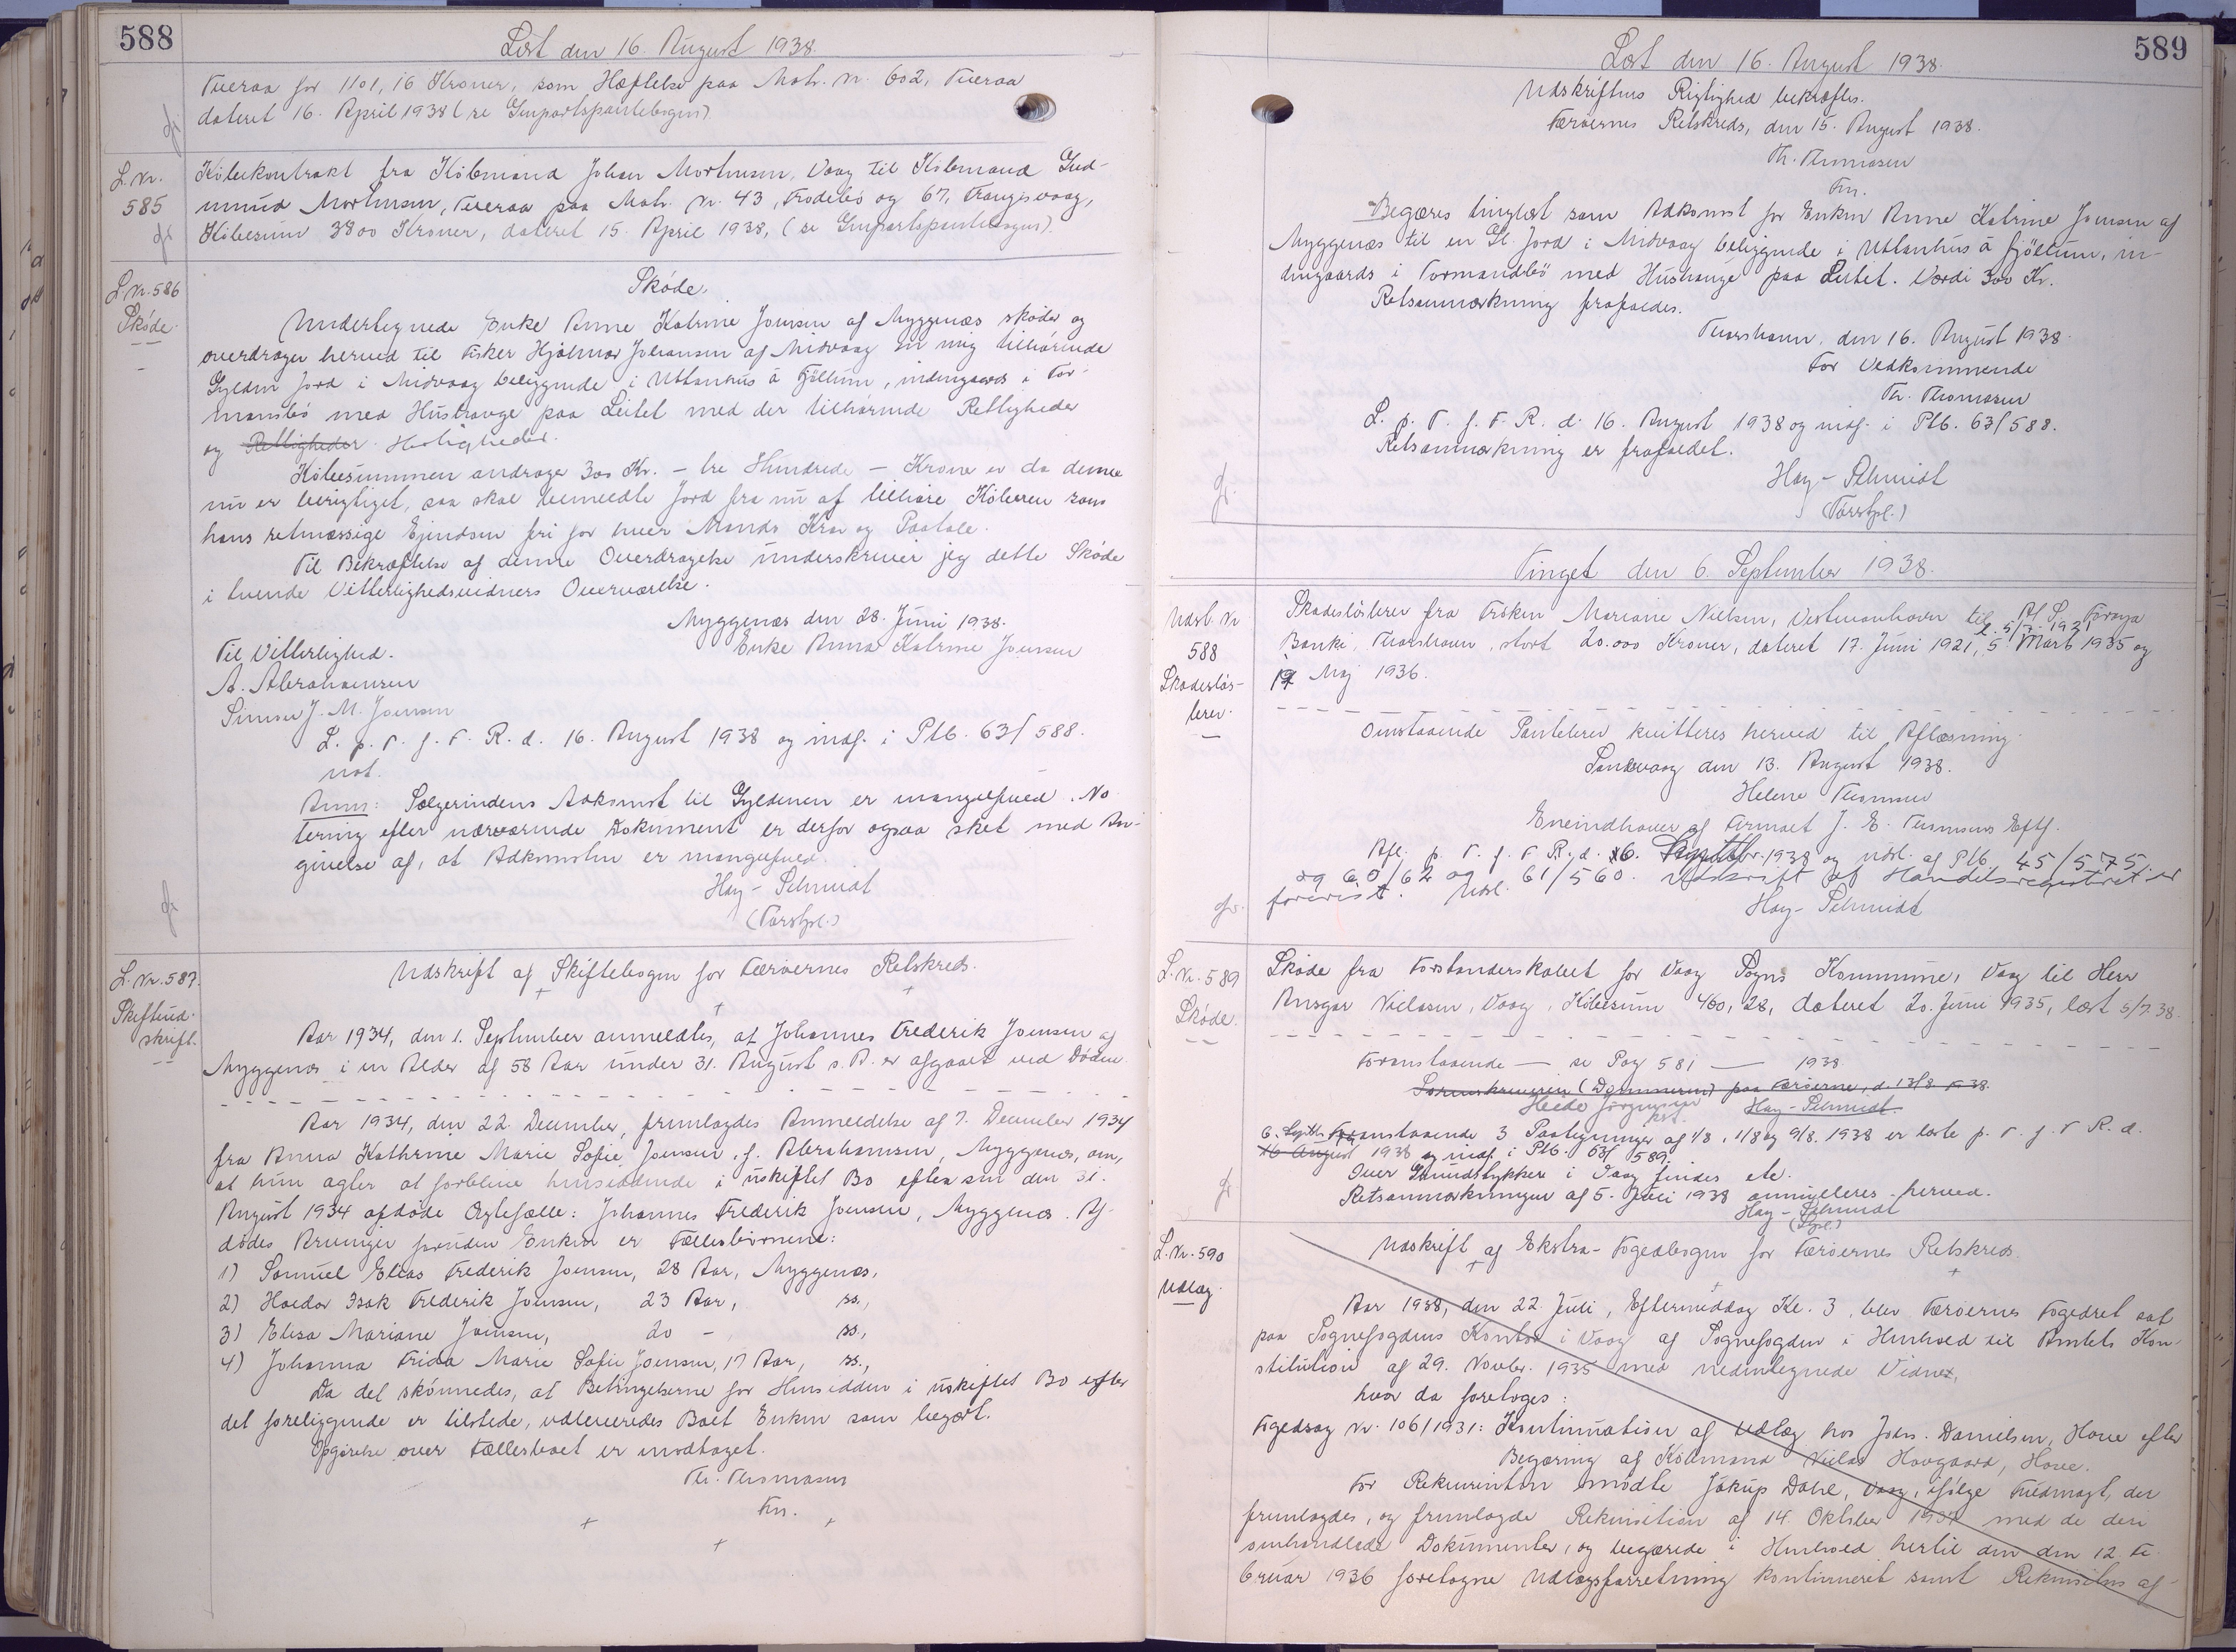 588
Læst den 16. August 1938.
Tveraa for 1101,16 Kroner, som Hæftelse paa Matr. Nr. 602, Tveraa
dateret 16. April 1938 (se Genpartspantebogen)
L. Nr.
585
Købekontrakt fra Købmand Johan Mortensen, Vaag til Købmand Gud-
mund Mortensen, Tveraa paa Matr. Nr. 43, Trodebö og 67, Trangisvaag,
Købesum 3800 Kroner, dateret 15. April 1938, (se Genpartspantebogen).
L Nr. 586
Skøde.
Skøde.
Undertegnede Enke Anne Katrine Joensen af Myggenæs skøder og
overdrager herved til Fisker Hjalmar Johansen af Midvaag en mig tilhørende
Gylden Jord i Midvaag beliggende i Uttanhús á Fjøllum, indengaards i For-
mansbö med Hustrange paa Leitet med der tilhørende Rettigheder
og Rettigheder. Herligheder.
Købesummen andrager 300 Kr. – tre Hundrede – Kroner da denne
nu er berigtiget, saa skal bemeldte Jord fra nu af tilhøre Køberen som
hans retmæssige Ejendom fri for hver Mands Krav og Paatale.
Til Bekræftelse af denne Overdragelse underskriver jeg dette Skøde
i tvende Vitterlighedsvidners Overværelse.
Myggenæs den 28. Juni 1938.
Enke Anna Katrine Joensen
Til Vitterlighed.
A. Abrahamsen
Simun J. M. Joensen
L. p. T. f. F. R. d. 16. August 1938 og indf. i Ptb. 63/588.
not.
Anm: Sælgerindens Adkomst til Gyldenen er mangelfuld. No-
tering efter nærværende Dokument er derfor ogsaa sket med An-
givelse af, at Adkomsten er mangelfuld.
Hay-Schmidt
(Forstpl.)
L. Nr. 587.
Skifteud-
skrift.
Udskrift af Skiftebogen for Færøernes Retskreds.
Aar 1934, den 1. September anmeldtes, at Johannes Frederik Joensen af
Myggenæs i en Alder af 58 Aar under 31. August s. A. er afgaaet ved Døden.
Aar 1934, den 22. December, fremlagdes Anmeldelse af 7. December 1934
fra Anna Kathrine Marie Sofie Joensen, f. Abrahamsen, Myggenæs, om,
at hun agter at forblive hensiddende i uskiftet Bo efter sin den 31.
August 1934 afdøde Ægtefælle: Johannes Frederik Joensen, Myggenæs. Af-
dødes Arvinger foruden Enken er Fællesbørnene:
1) Samuel Elias Frederik Joensen, 28 Aar, Myggenæs,
2) Hardar Isak Frederik Joensen, 23 Aar, ss.,
3) Elisa Mariane Joensen, 20 – , ss.,
4) Johanna Frida Marie Sofie Joensen, 17 Aar, ss.,
Da det skønnedes, at Betingelserne for Hensidden i uskiftet Bo efter
det foreliggende er tilstede, udleveredes Boet Enken som begært.
Opgørelse over Fællesboet er modtaget.
Th. Thomasen
Fm.
589
Læst den 16. August 1938.
Udskriftens Rigtighed bekræftes.
Færøernes Retskreds, den 15. August 1938.
Th. Thomasen
Fm.
Begæres tinglæst som Adkomst for Enken Anne Katrine Joensen af
Myggenæs til en Gl. Jord i Midvaag beliggende i Uttanhús á Fjøllum, in-
dengaards i Formandsbö med Hustrange paa Leitet. Værdi 300 Kr.
Retsanmærkning frafaldes.
Thorshavn, den 16. August 1938.
For Vedkommende
Th. Thomasen
L. p. T. f. F. R. d. 16. August 1938 og indf. i Ptb. 63/588.
Retsanmærkning er frafaldet.
Hay-Schmidt
(Forstpl.)
Tinget den 6. September 1938.
Udsl. Nr
588
Skadesløs-
brev.
Skadesløsbrev fra Frøken Mariane Nielsen, Vestmanhavn til A/S Føroya
Banki, Thorshavn, stort 20.000 Kroner, dateret 17. Juni 1921, 5. Marts 1935 og
19 Maj 1936.
Omstaaende Pantebrev kvitteres herved til Aflæsning.
Sandevaag den 13. August 1938.
Helene Thomsen
Eneindehaver af Firmaet J. E. Thomsens Eftf.
Afl. p. T. f. F. R. d. 6. Septbr. 1938 og udsl. af Ptb. 45/575.
og 60/62 og Udsl. 61/560. Udskrift af Handelsregistret er
forevist.
Hay-Schmidt
L. Nr. 589
Skøde.
Skøde fra Forstanderskabet for Vaag Sogns Kommune, Vaag til Herr
Ansgar Nielsen, Vaag, Købesum 460,28, dateret 20. Juni 1935, læst 5/7.38.
Foranstaaende — se Pag 581 — 1938.
Sorenskriveren (Dommeren) paa Færøerne, d. 13/8 1938.
Heide Jørgensen Hay-Schmidt.
kst.
6. Septbr. Foranstaaende 3 Paategninger af 1/8, 1/8 og 9/8. 1938 er læste p. T. f. F. R. d.
16 August 1938 og indf. i Ptb. 63/589.
Over Grundstykker i Vaag findes etc.
Retsanmærkningen af 5. Juli 1938 annulleres herved.
Hay-Schmidt
L. Nr. 590
Udlæg.
Udskrift af Ekstra-Fogedbogen for Færøernes Retskreds.
Aar 1938, den 22. Juli, Eftermiddag Kl. 3, blev Færøernes Fogedret sat
paa Sognefogdens Kontor i Vaag af Sognefogden i Henhold til Amtets Kon-
stitution af 29. Novbr. 1935 med nedentegnede Vidner,
hvor da foretoges:
Fogedsag Nr. 106/1931: Kontinuation af Udlæg hos Johs. Danielsen, Hove efter
Begæring af Købmand Niclas Hovgaard, Hove.
For Rekvirenten mødte Jákup Dahl, Vaag, ifølge Fuldmagt, der
fremlagdes, og fremlagde Rekvisition af 14. Oktober 1937 med de deri
omhandlede Dokumenter, og begærede i Henhold hertil den den 12. Fe-
bruar 1936 foretagne Udlægsforretning kontinueret samt Rekvisitus af-